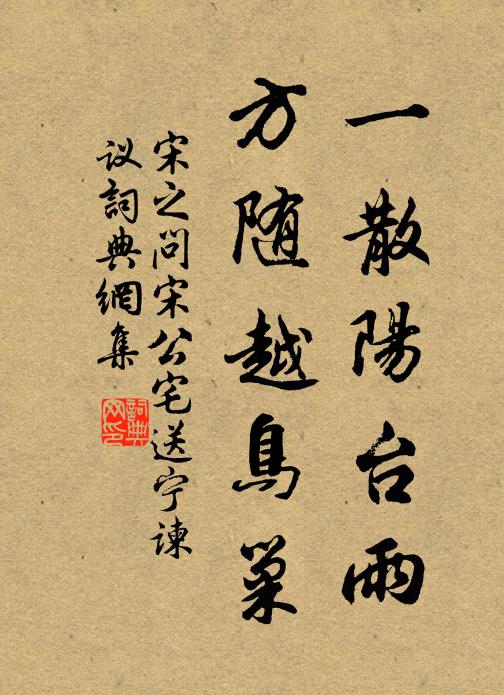 一散陽台雨
方随越鳥巢
宋之问宋公宅送宁谏
议詞典網集
詞典
网印